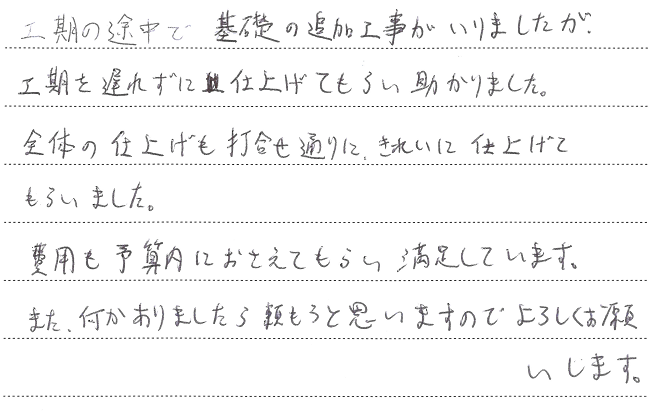 工期の途中で基礎の追加工事がいりましたが、
工期を遅れずに仕上げてもらい助かりました。
全体の仕上げも打合せ通りに、きれいに仕上げて
もらいました。
費用も予算内におさえてもらい満足しています。
また、何かありましたら頼もうと思いますのでよろしくお願
いします。